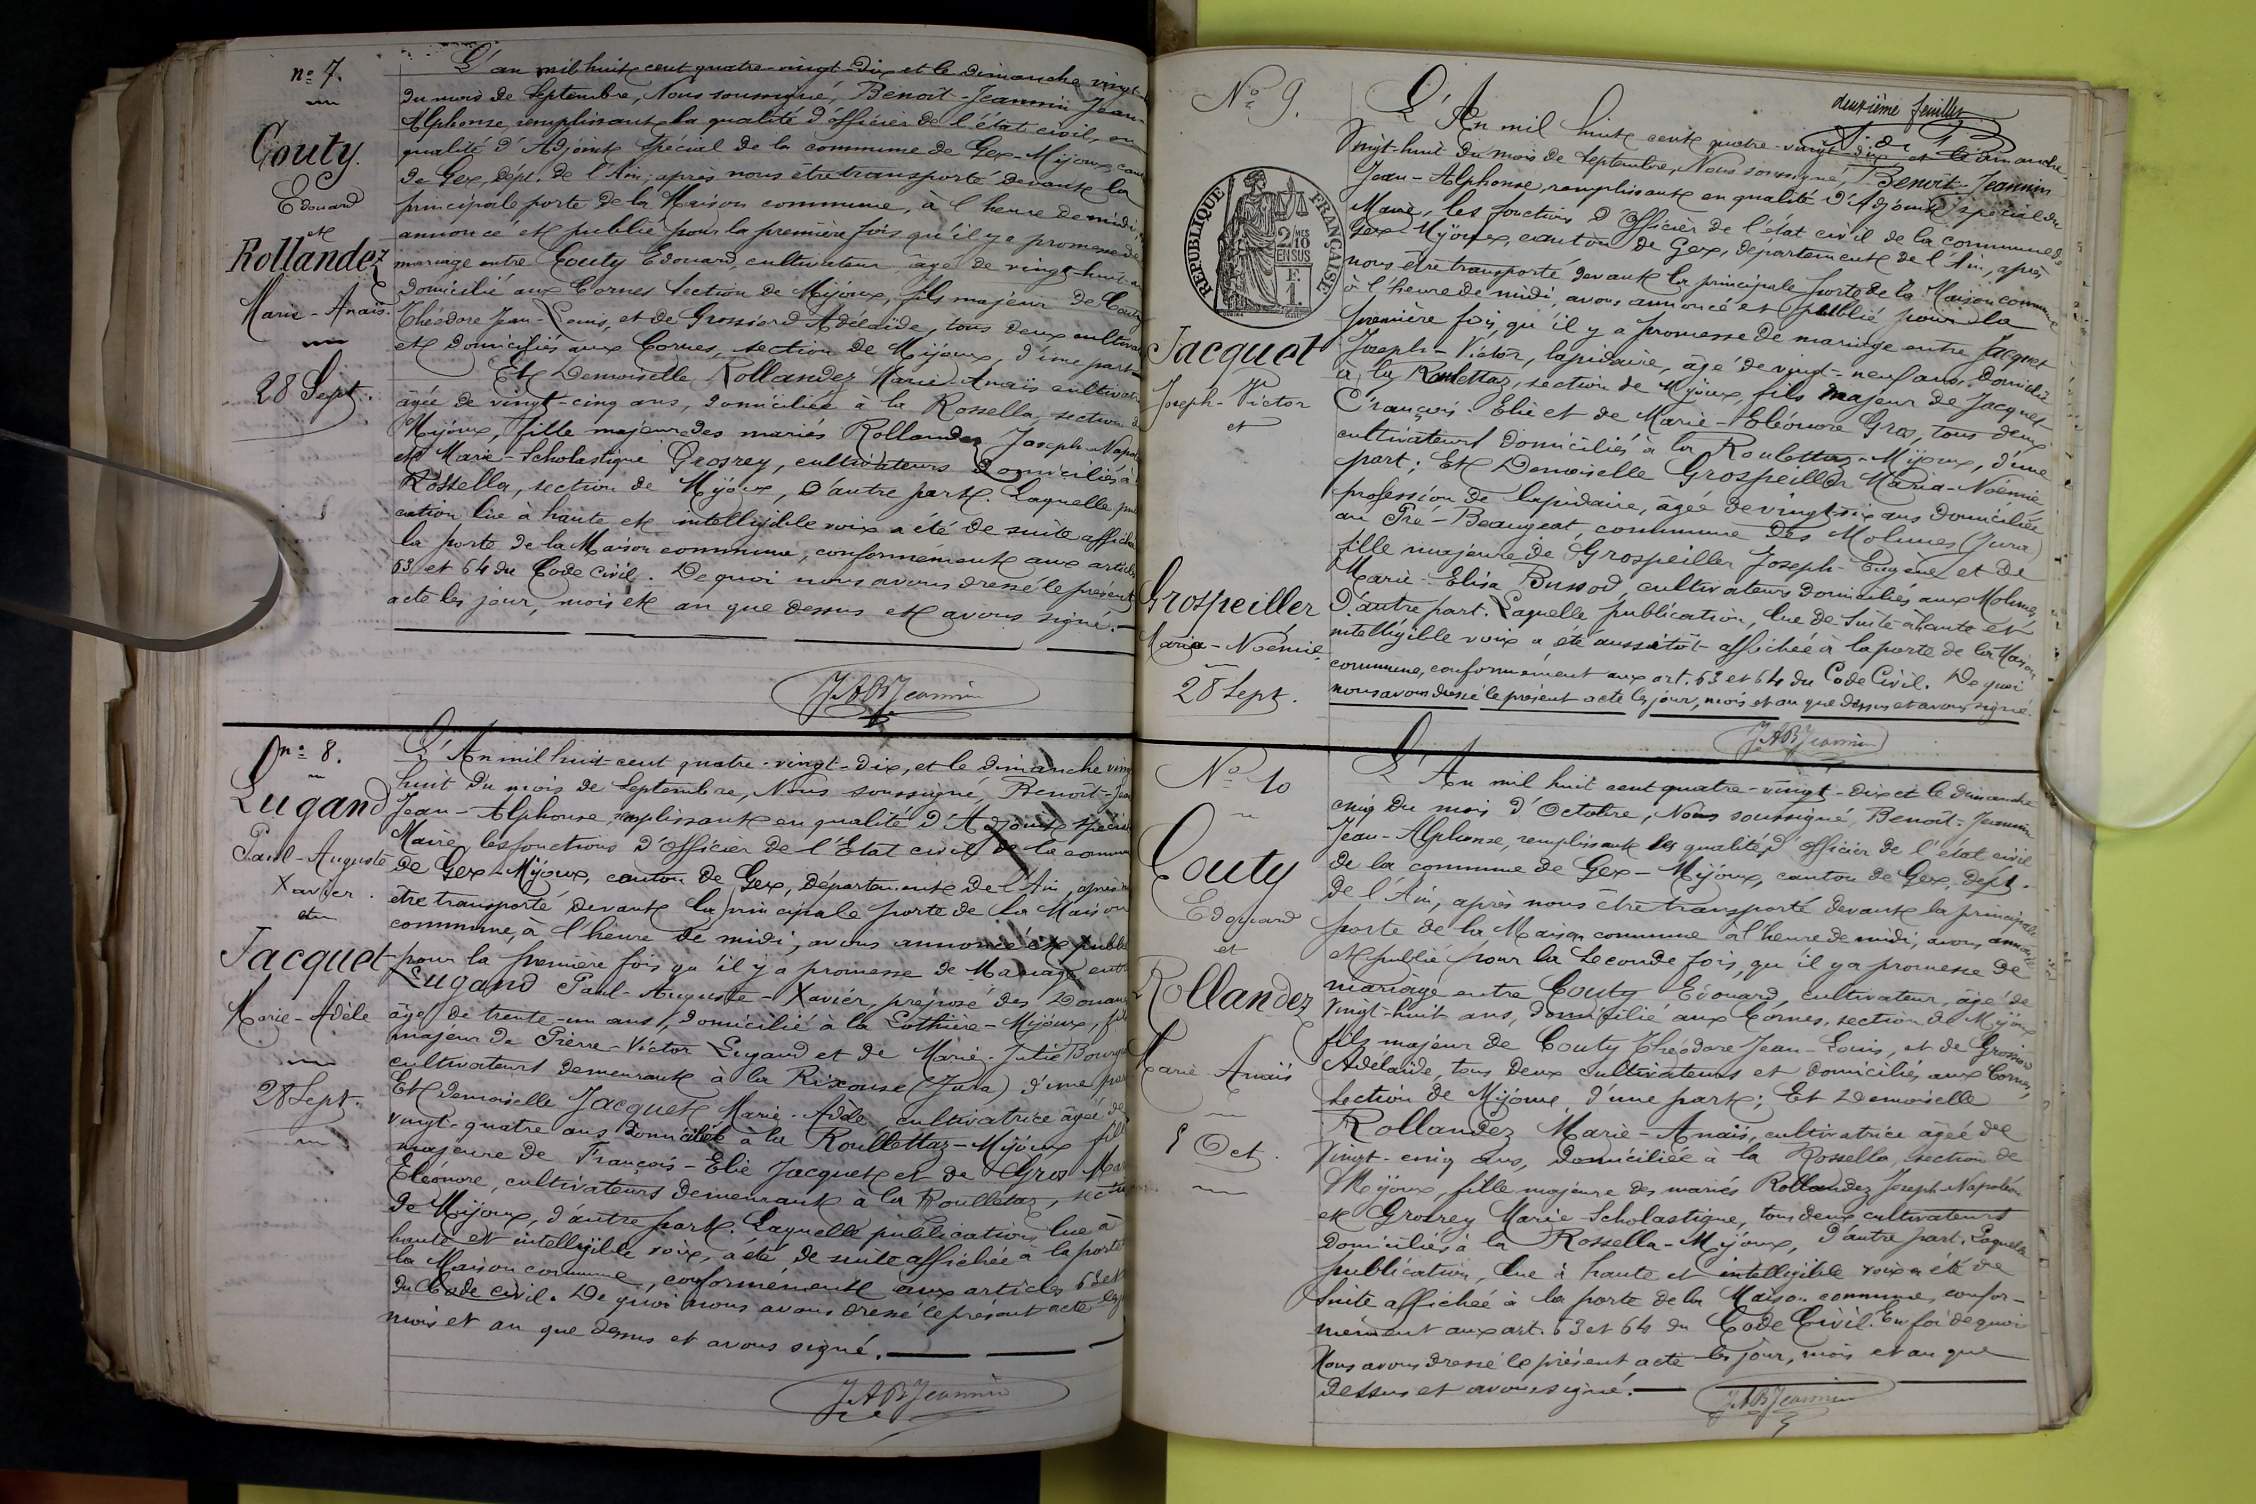 nº 7.
Couty.
Edouard
et
Rollandez
Marie-Anaïs.
28 Sept.
L'an mil huit cent quatre-vingt-dix et le dimanche vingt-
du mois de Septembre, Nous soussigné, Benoit-Jeannin Jean-
Alphonse, remplissant la qualité d'officier de l'état civil, en
qualité d'Adjoint spécial de la commune de Gex-Mijoux, can
de Gex, dépt. de l'Ain, après nous être transporté devant la
principale porte de la Maison commune, à l'heure de midi,
annoncé et publié pour la première fois qu'il y a promesse de
mariage entre Couty Edouard, cultivateur âgé de vingt-huit
domicilié aux Cornes section de Mijoux, fils majeur de Couty
Théodore Jean-Louis, et de Grossiord Adélaïde, tous deux cultiva
et domiciliés aux Cornes, section de Mijoux, d'une part
Et Demoiselle Rollandez Marie-Anaïs cultivatr
âgée de vingt-cinq ans, domiciliée à la Rossella, section d
Mijoux, fille majeure des mariés Rollandez Joseph-Napol
et Marie-Scholastique Grosrey, cultivateurs domiciliés à
Rossella, section de Mijoux, d'autre part. Laquelle pu
cation lue à haute et intelligible voix a été de suite affichée
la porte de la Maison commune, conformément aux articles
63 et 64 du Code Civil. De quoi nous avons dressé le présent
acte les jour, mois et an que dessus et avons signé.
JABJeannin
nº 8.
Lugand
Paul-Auguste
Xavier.
et
Jacquet
Marie-Adèle
28 Sept.
L'An mil huit-cent quatre-vingt-dix, et le dimanche ving
huit du mois de Septembre, Nous soussigné, Benoît-Jean
Jean-Alphonse remplissant en qualité d'Adjoint spécia
Maire, les fonctions d'Officier de l'Etat civil de la commu
de Gex-Mijoux, canton de Gex, Département de l'Ain, après
être transporté devant la principale porte de la Maison
commune, à l'heure de midi, avons annoncé et publié
pour la première fois qu'il y a promesse de Mariage entre
Lugand Paul-Auguste-Xavier, préposé des Douane
âgé de trente-un ans, domicilié à la -Mijoux, fil
majeur de Pierre-Victor Lugand et de Marie-Julie
cultivateurs demeurant à la Rixouse (Jura) d'une part
Et demoiselle Jacquet Marie-Adèle cultivatrice âgée de
vingt-quatre ans domiciliée à la Roullettaz-Mijoux fille
majeure de François-Elie Jacquet et de Gros Mar
Eléonore, cultivateurs demeurant à la Roulletaz, section
de Mijoux, d'autre part. Laquelle publication, lue à
haute et intelligible voix, a été de suite affichée à la porte
la Maison commune, conformément aux articles 63 et
du Code civil. De quoi nous avons dressé le présent acte les
mois et an que dessus et avons signé.
JABJeannin
deuxième feuillet
Nº 9.
RÉPUBLIQUE FRANÇAISE
2/10MES
EN SUS
F
1
Jacquet
Joseph-Victor
et
Grospeiller
Maria-Noémie
28 Sept.
L'An mil huit cent quatre-vingt-dix, et le dimanche
Vingt-huit du mois de Septembre, Nous soussigné, Benoit-Jeannin
Jean-Alphonse, remplissant en qualité d'Adjoint spécial du
Maire, les fonctions d'Officier de l'état civil de la commune de
Gex-Mijoux, canton de Gex, département de l'Ain, après
nous être transporté devant la principale porte de la Maison commune
à l'heure de midi, avons annoncé et publié pour la
première fois, qu'il y a promesse de mariage entre Jacquet
Joseph-Victor, lapidaire, âgé de vingt-neuf ans, domicilié
à la Roulettaz, section de Mijoux, fils majeur de Jacquet
François-Elie et de Marie-Eléonore Gros, tous deux
cultivateurs domiciliés à la Roulettaz-Mijoux, d'une
part; Et Demoiselle Grospeiller Maria-Noémie
profession de lapidaire, âgée de vingt-six ans domiciliée
au Pré-Beaugeat commune des Molunes (Jura)
fille majeure de Grospeiller Joseph-Eugène et de
Marie-Elisa Bussod, cultivateurs domiciliés aux Molunes
D'autre part. Laquelle publication, lue de suite à haute et
intelligible voix a été aussitôt affichée à la porte de la Maison
commune, conformément aux art. 63 et 64 du Code Civil. De quoi
nous avons dressé le présent acte les jour, mois et an que dessus et avons signé.
JABJeannin
Nº 10
Couty
Edouard
et
Rollandez
Marie Anaïs
5 Oct.
L'An mil huit cent quatre-vingt-dix et le dimanche
cinq du mois d'Octobre, Nous soussigné, Benoit-Jeannin
Jean-Alphonse, remplissant les qualités d'officier de l'état civil
de la commune de Gex-Mijoux, canton de Gex, dépt.
de l'Ain, après nous être transporté devant la principale
porte de la Maison commune à l'heure de midi, avons annoncé
et publié pour la seconde fois, qu'il y a promesse de
mariage entre Couty Edouard, cultivateur, âgé de
vingt-huit ans, domicilié aux Cornes, section de Mijoux
fils majeur de Couty Théodore Jean-Louis, et de Grossiord
Adélaïde, tous deux cultivateurs et domiciliés aux Cornes,
section de Mijoux, d'une part; Et Demoiselle
Rollandez Marie-Anaïs, cultivatrice âgée de
Vingt-cinq ans, domiciliée à la Rossella, section de
Mijoux, fille majeure des mariés Rollandez Joseph-Napoléon
et Grosrey Marie-Scholastique, tous deux cultivateurs
domiciliés à la Rossella-Mijoux, d'autre part. Laquelle
publication, lue à haute et intelligible voix a été de
suite affichée à la porte de la Maison commune, confor-
mément aux art. 63 et 64 du Code Civil. En foi de quoi
Nous avons dressé le présent acte les jour, mois et an que
dessus et avons signé.
JABJeannin